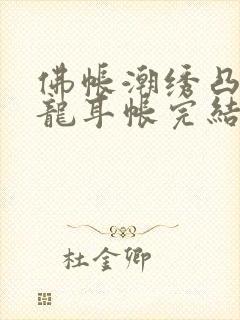 佛帳潮绣凸
龍耳帳完結
杜金卿